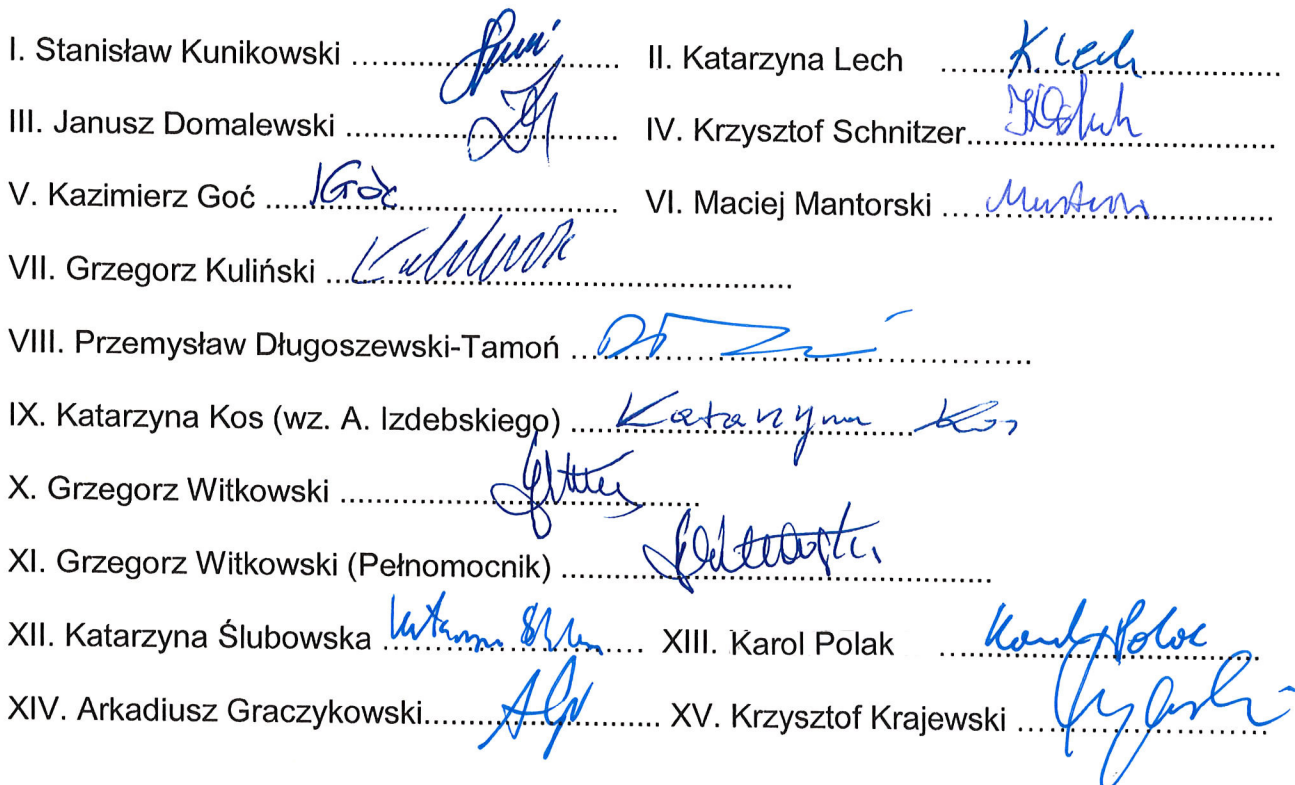 I. Stanisław Kunikowski .......................... II. Katarzyna Lech .......................... K. Lech
III. Janusz Domalewski .......................... IV. Krzysztof Schnitzer..........................
V. Kazimierz Goć .......................... KGoć VI. Maciej Mantorski ..........................
VII. Grzegorz Kuliński ..........................
VIII. Przemysław Długoszewski-Tamoń ..........................
IX. Katarzyna Kos (wz. A. Izdebskiego) .......................... Katarzyna Kos
X. Grzegorz Witkowski ..........................
XI. Grzegorz Witkowski (Pełnomocnik) ..........................
XII. Katarzyna Ślubowska .......................... XIII. Karol Polak .......................... Karol Polak
XIV. Arkadiusz Graczykowski.......................... XV. Krzysztof Krajewski ..........................